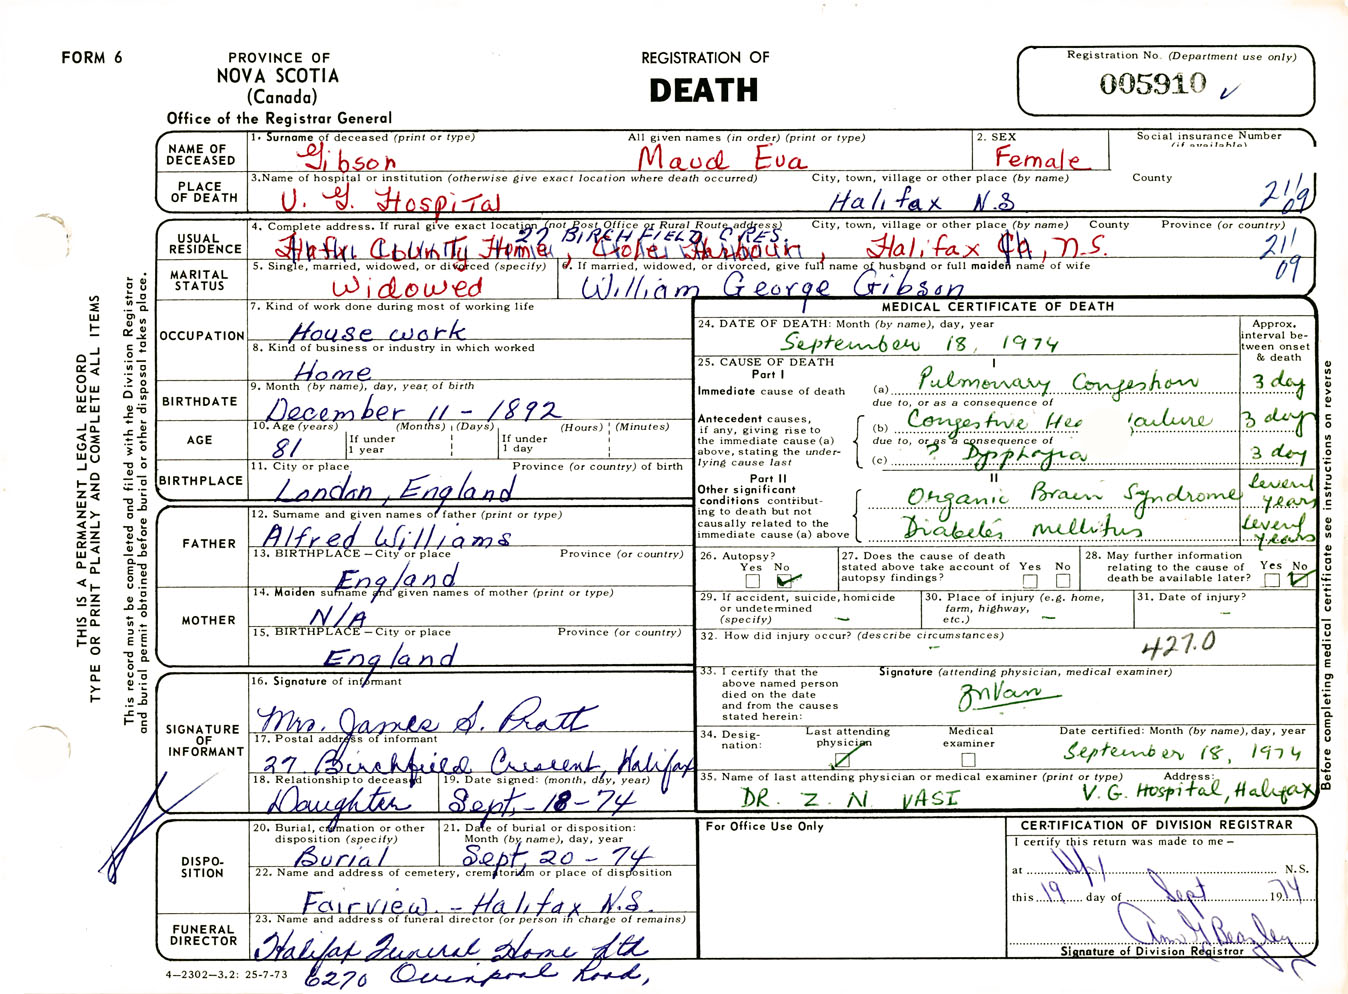 FORM 6
PROVINCE OF
NOVA SCOTIA
(Canada)
Office of the Registrar General
REGISTRATION OF
DEATH
Registration No. (Department use only)
005910
THIS IS A PERMANENT LEGAL RECORD
TYPE OR PRINT PLAINLY AND COMPLETE ALL ITEMS
This record must be completed and filed with the Division Registrar
and burial permit obtained before burial or other disposal takes place.
NAME OF
DECEASED
1. Surname of deceased (print or type) All given names (in order) (print or type)
Gibson Maud Eva
2. SEX
Female
Social insurance Number
(if available)
PLACE
OF DEATH
3. Name of hospital or institution (otherwise give exact location where death occurred) City, town, village or other place (by name) County
V. G. Hospital Halifax N.S
211
09
USUAL
RESIDENCE
4. Complete address. If rural give exact location (not Post Office or Rural Route address) City, town, village or other place (by name) County Province (or country)
27 BIRCHFIELD CRES.
Hfx County Home, Cole Harbour, Halifax N.S.
211
09
MARITAL
STATUS
5. Single, married, widowed, or divorced (specify)
Widowed
6. If married, widowed, or divorced, give full name of husband or full maiden name of wife
William George Gibson
OCCUPATION
7. Kind of work done during most of working life
House work
8. Kind of business or industry in which worked
Home
BIRTHDATE
9. Month (by name), day, year, of birth
December 11 - 1892
AGE
10. Age (years) (Months) (Days) (Hours) (Minutes)
81
If under
1 year
If under
1 day
BIRTHPLACE
11. City or place Province (or country) of birth
London, England
FATHER
12. Surname and given names of father (print or type)
Alfred Williams
13. BIRTHPLACE – City or place Province (or country)
England
MOTHER
14. Maiden surname and given names of mother (print or type)
N/A
15. BIRTHPLACE – City or place Province (or country)
England
SIGNATURE
OF
INFORMANT
16. Signature of informant
Mrs. James S. Pratt
17. Postal address of informant
27 Birchfield Crescent, Halifax
18. Relationship to deceased
Daughter
19. Date signed: (month, day, year)
Sept. - 18 - 74
DISPO-
SITION
20. Burial, cremation or other
disposition (specify)
Burial
21. Date of burial or disposition:
Month (by name), day, year
Sept, 20 - 74
22. Name and address of cemetery, crematorium or place of disposition
Fairview. - Halifax N.S.
FUNERAL
DIRECTOR
23. Name and address of funeral director (or person in charge of remains)
Halifax Funeral Home Ltd
6270 Quinpool Road,
4–2302–3.2: 25-7-73
MEDICAL CERTIFICATE OF DEATH
24. DATE OF DEATH: Month (by name), day, year
September 18, 1974
Approx.
interval be-
tween onset
& death
25. CAUSE OF DEATH
Part I
I
Immediate cause of death
(a) Pulmonary Congestion 3 day
due to, or as a consequence of
Antecedent causes,
if any, giving rise to
the immediate cause (a)
above, stating the under-
lying cause last
(b) Congestive Hea ailure 3 day
due to, or as a consequence of
(c) ? Dysphagia 3 day
Part II
II
Other significant
conditions contribut-
ing to death but not
causally related to the
immediate cause (a) above
Organic Brain Syndrome several years
Diabetes mellitus several years
26. Autopsy?
Yes No
27. Does the cause of death
stated above take account of
autopsy findings?
Yes No
28. May further information
relating to the cause of
death be available later?
Yes No
29. If accident, suicide, homicide
or undetermined
(specify) –
30. Place of injury (e.g. home,
farm, highway,
etc.) –
31. Date of injury?
–
32. How did injury occur? (describe circumstances)
–
427.0
33. I certify that the
above named person
died on the date
and from the causes
stated herein:
Signature (attending physician, medical examiner)
34. Desig-
nation:
Last attending
physician
Medical
examiner
Date certified: Month (by name), day, year
September 18, 1974
35. Name of last attending physician or medical examiner (print or type) Address:
DR. Z. N. VASI V. G. Hospital, Halifax
Before completing medical certificate see instructions on reverse
For Office Use Only
CERTIFICATION OF DIVISION REGISTRAR
I certify this return was made to me –
at Hfx N.S.
this 19 day of Sept 1974
Ann G Beazley
Signature of Division Registrar